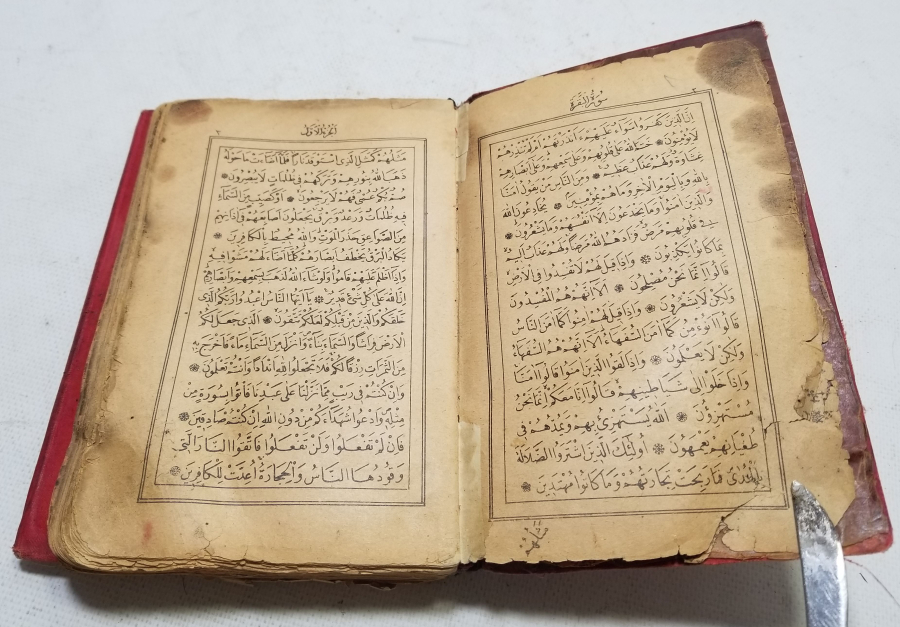 سُورَةُ الْبَقَرَةِ
اِنَّ الَّذِينَ كَفَرُوا سَوَاءٌ عَلَيْهِمْ ءَاَنْذَرْتَهُمْ اَمْ لَمْ تُنْذِرْهُمْ
لَا يُؤْمِنُونَ ❁ خَتَمَ اللهُ عَلَى قُلُوبِهِمْ وَعَلَى سَمْعِهِمْ وَعَلَى اَبْصَارِهِمْ
غِشَاوَةٌ وَلَهُمْ عَذَابٌ عَظِيمٌ ❁ وَمِنَ النَّاسِ مَنْ يَقُولُ اٰمَنَّا
بِاللهِ وَبِالْيَوْمِ الْاٰخِرِ وَمَا هُمْ بِمُؤْمِنِينَ ❁ يُخَادِعُونَ اللهَ
وَالَّذِينَ اٰمَنُوا وَمَا يَخْدَعُونَ اِلَّا اَنْفُسَهُمْ وَمَا يَشْعُرُونَ ❁
فِي قُلُوبِهِمْ مَرَضٌ فَزَادَهُمُ اللهُ مَرَضًا وَلَهُمْ عَذَابٌ اَلِيمٌ
بِمَا كَانُوا يَكْذِبُونَ ❁ وَاِذَا قِيلَ لَهُمْ لَا تُفْسِدُوا فِي الْاَرْضِ
قَالُوا اِنَّمَا نَحْنُ مُصْلِحُونَ ❁ اَلَا اِنَّهُمْ هُمُ الْمُفْسِدُونَ
وَلَكِنْ لَا يَشْعُرُونَ ❁ وَاِذَا قِيلَ لَهُمْ اٰمِنُوا كَمَا اٰمَنَ النَّاسُ
قَالُوا اَنُؤْمِنُ كَمَا اٰمَنَ السُّفَهَاءُ اَلَا اِنَّهُمْ هُمُ السُّفَهَاءُ
وَلَكِنْ لَا يَعْلَمُونَ ❁ وَاِذَا لَقُوا الَّذِينَ اٰمَنُوا قَالُوا اٰمَنَّا
وَاِذَا خَلَوْا اِلَى شَيَاطِينِهِمْ قَالُوا اِنَّا مَعَكُمْ اِنَّمَا نَحْنُ
مُسْتَهْزِؤُنَ ❁ اَللهُ يَسْتَهْزِئُ بِهِمْ وَيَمُدُّهُمْ فِي
طُغْيَانِهِمْ يَعْمَهُونَ ❁ اُولٰئِكَ الَّذِينَ اشْتَرَوُا الضَّلَالَةَ
بِالْهُدٰى فَمَا رَبِحَتْ تِجَارَتُهُمْ وَمَا كَانُوا مُهْتَدِينَ ❁
اَلْجُزْءُ الْاَوَّلُ
مَثَلُهُمْ كَمَثَلِ الَّذِي اسْتَوْقَدَ نَارًا فَلَمَّا اَضَاءَتْ مَا حَوْلَهُ
ذَهَبَ اللهُ بِنُورِهِمْ وَتَرَكَهُمْ فِي ظُلُمَاتٍ لَا يُبْصِرُونَ ❁
صُمٌّ بُكْمٌ عُمْيٌ فَهُمْ لَا يَرْجِعُونَ ❁ اَوْ كَصَيِّبٍ مِنَ السَّمَاءِ
فِيهِ ظُلُمَاتٌ وَرَعْدٌ وَبَرْقٌ يَجْعَلُونَ اَصَابِعَهُمْ فِي اٰذَانِهِمْ
مِنَ الصَّوَاعِقِ حَذَرَ الْمَوْتِ وَاللهُ مُحِيطٌ بِالْكَافِرِينَ ❁
يَكَادُ الْبَرْقُ يَخْطَفُ اَبْصَارَهُمْ كُلَّمَا اَضَاءَ لَهُمْ مَشَوْا فِيهِ
وَاِذَا اَظْلَمَ عَلَيْهِمْ قَامُوا وَلَوْ شَاءَ اللهُ لَذَهَبَ بِسَمْعِهِمْ وَاَبْصَارِهِمْ
اِنَّ اللهَ عَلَى كُلِّ شَيْءٍ قَدِيرٌ ❁ يَا اَيُّهَا النَّاسُ اعْبُدُوا رَبَّكُمُ الَّذِي
خَلَقَكُمْ وَالَّذِينَ مِنْ قَبْلِكُمْ لَعَلَّكُمْ تَتَّقُونَ ❁ اَلَّذِي جَعَلَ لَكُمُ
الْاَرْضَ فِرَاشًا وَالسَّمَاءَ بِنَاءً وَاَنْزَلَ مِنَ السَّمَاءِ مَاءً فَاَخْرَجَ بِهِ
مِنَ الثَّمَرَاتِ رِزْقًا لَكُمْ فَلَا تَجْعَلُوا لِلّٰهِ اَنْدَادًا وَاَنْتُمْ تَعْلَمُونَ ❁
وَاِنْ كُنْتُمْ فِي رَيْبٍ مِمَّا نَزَّلْنَا عَلَى عَبْدِنَا فَأْتُوا بِسُورَةٍ مِنْ
مِثْلِهِ وَادْعُوا شُهَدَاءَكُمْ مِنْ دُونِ اللهِ اِنْ كُنْتُمْ صَادِقِينَ ❁
فَاِنْ لَمْ تَفْعَلُوا وَلَنْ تَفْعَلُوا فَاتَّقُوا النَّارَ الَّتِي
وَقُودُهَا النَّاسُ وَالْحِجَارَةُ اُعِدَّتْ لِلْكَافِرِينَ ❁